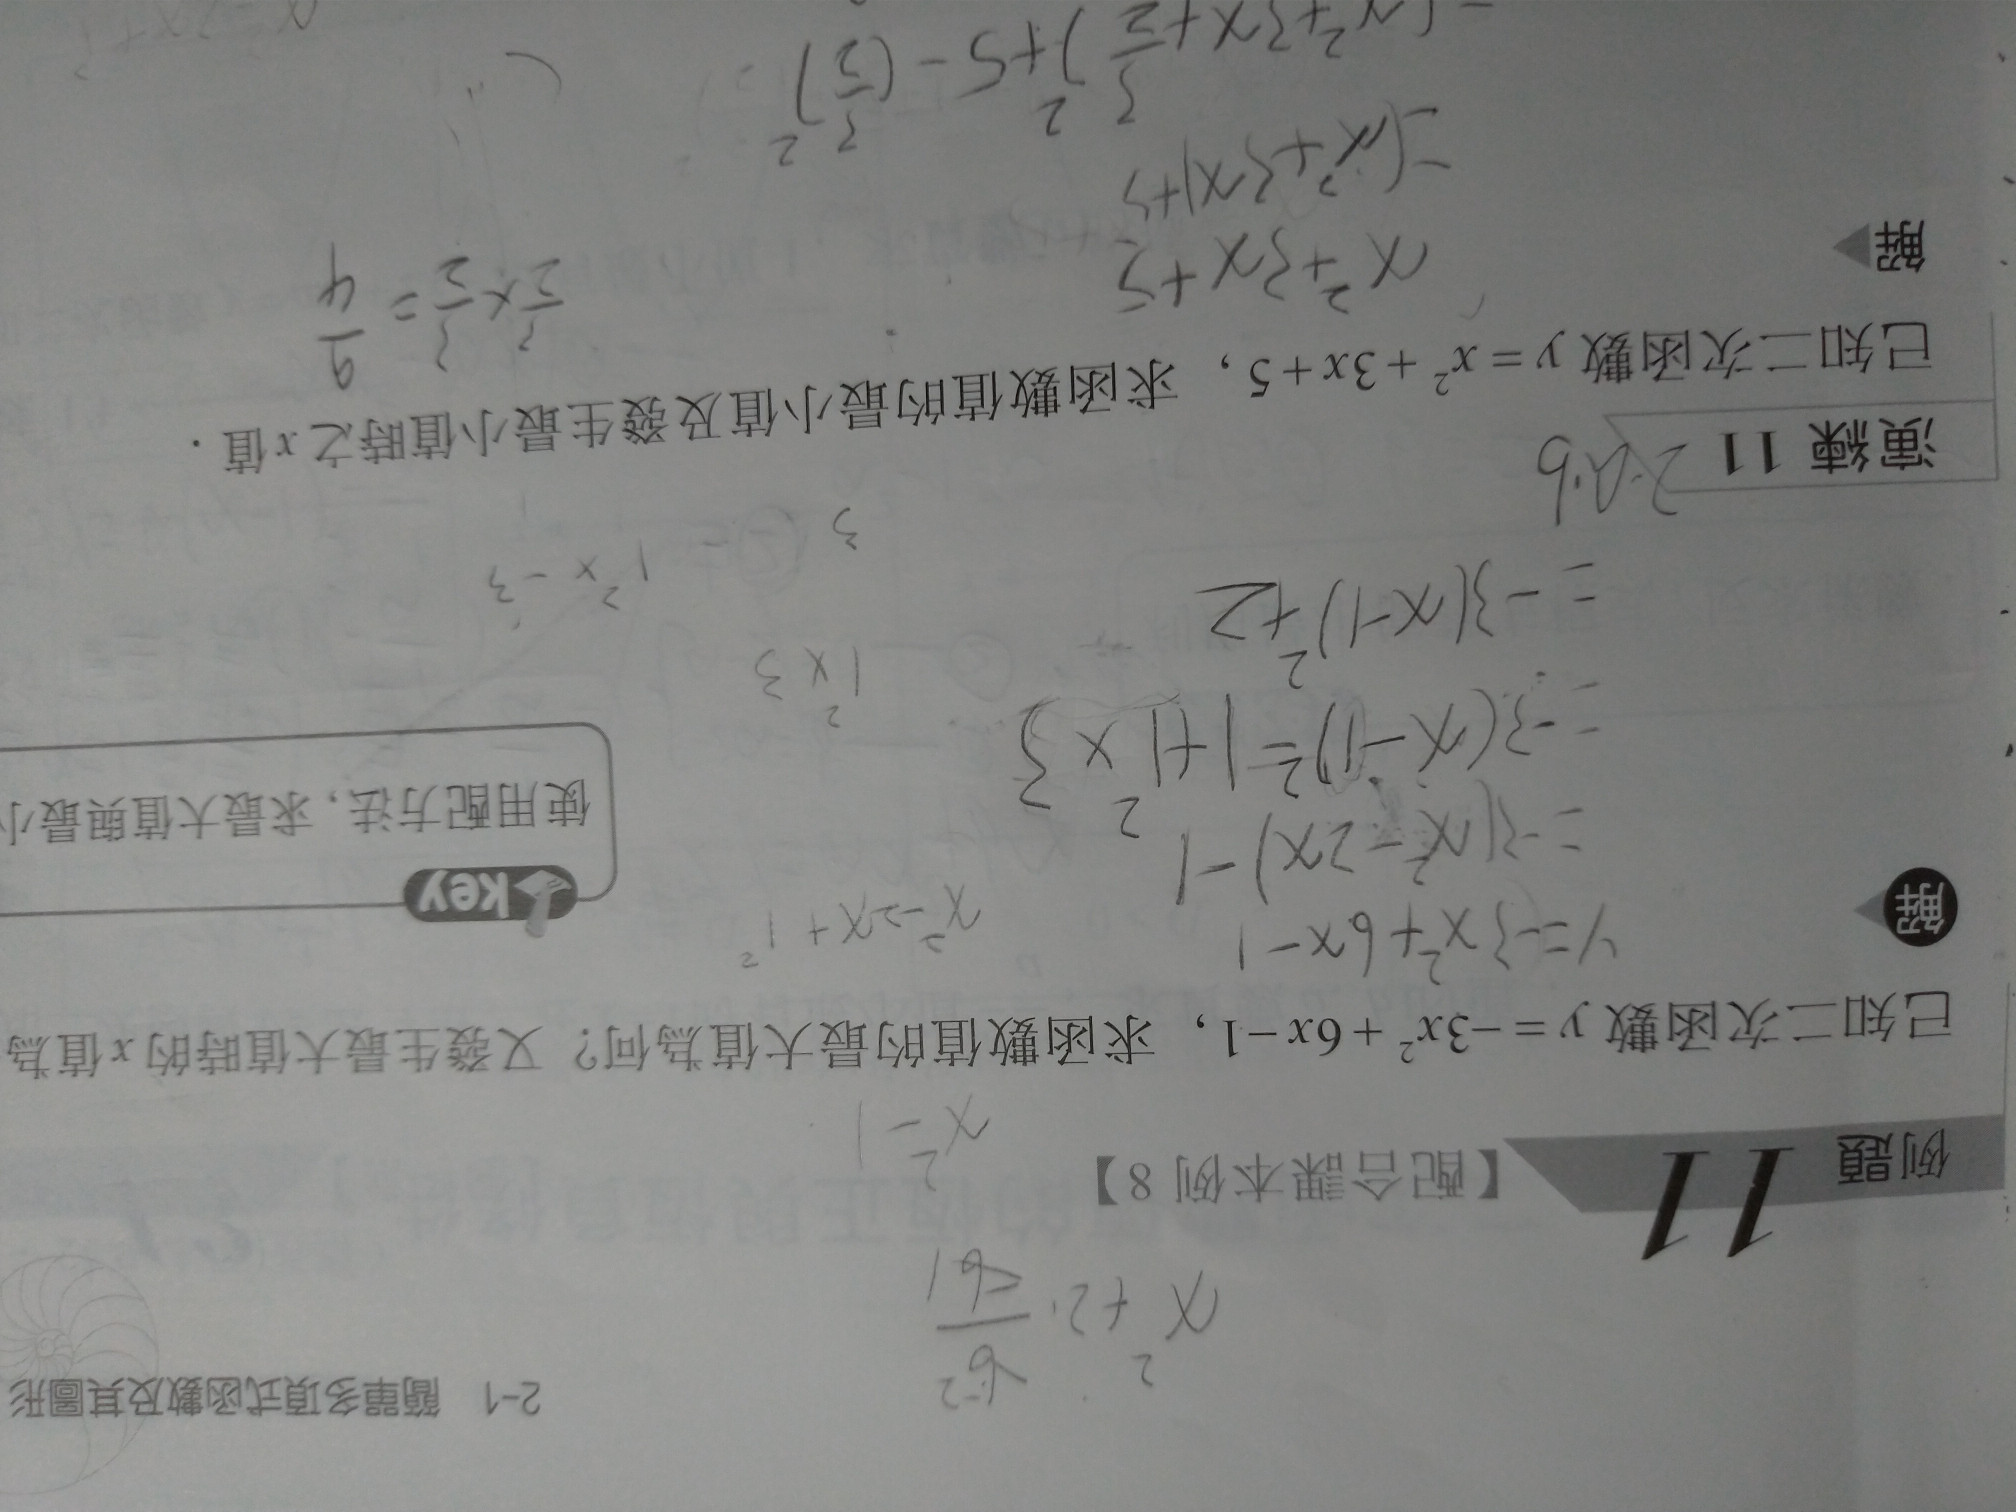 2-1 簡單多項式函數及其圖形
x²+2·
例題 11 【配合課本例 8】
x²-1
已知二次函數 y = -3x² + 6x - 1，求函數值的最大值為何？又發生最大值時的 x 值為
解 y=-3x²+6x-1
x²-2x+1²
key
=-3(x²-2x)-1
使用配方法，求最大值與最小
=-3(x-1)²-1+1²×3
1²×3
=-3(x-1)²+2
1²×-3
3
演練 11 2·a·b
已知二次函數 y = x² + 3x + 5，求函數值的最小值及發生最小值時之 x 值．
解 x²+3x+5
3/2×3/2=9/4
=(x²+3x)+5
=(x²+3x+3/2²)+5-(3/2)²